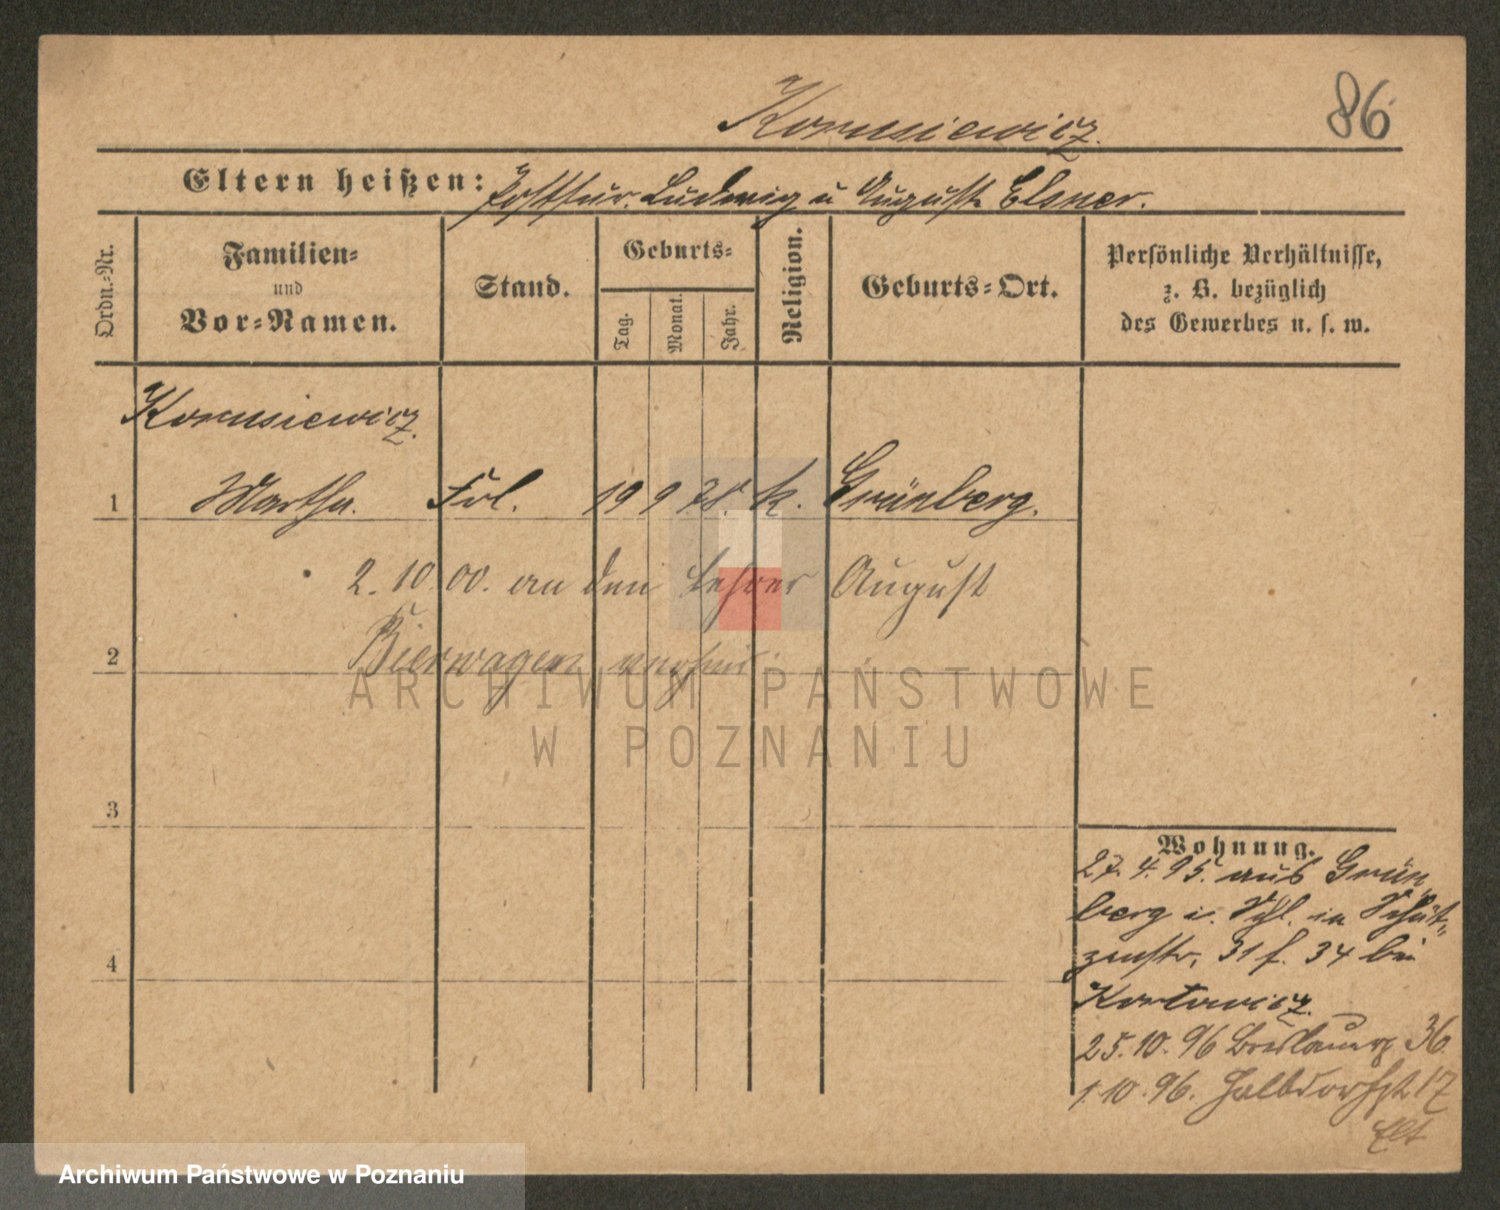 Korusiewicz.
86
Eltern heißen: Postsekr. Ludwig u Auguste Elsner.
Ordn.-Nr.
Familien-
und
Vor-Namen.
Stand.
Geburts-
Tag.
Monat.
Jahr.
Religion.
Geburts-Ort.
Persönliche Verhältnisse,
z. B. bezüglich
des Gewerbes u. s. w.
Korusiewicz.
1 Martha. Frl. 19 9 78. k. Grünberg.
2. 10. 00. an den Lehrer August
2 Bierwagen
3
4
Wohnung.
27. 4. 95. aus Grün
berg i. Schl. in Schüt-
zenstr. 31 f. 34 bei
Kortowicz.
25. 10. 96 Breslauer 36
1. 10. 96. Halbdorfst 17
Elt
ARCHIWUM PAŃSTWOWE
W POZNANIU
Archiwum Państwowe w Poznaniu